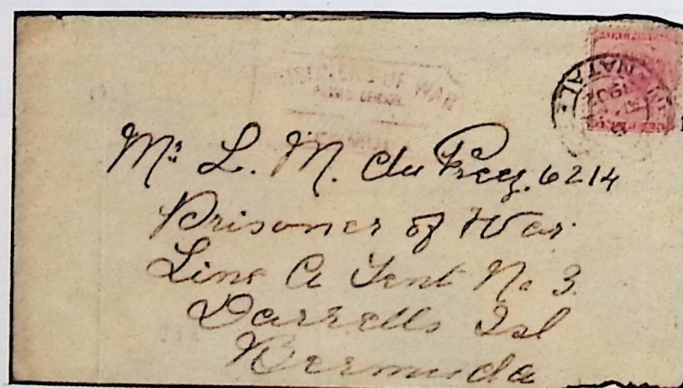 PRISONER OF WAR
NATAL
1902
Mr L. M. du Preez. 6214
Prisoner of War
Line A Tent No 3
Darrells Isl
Bermuda